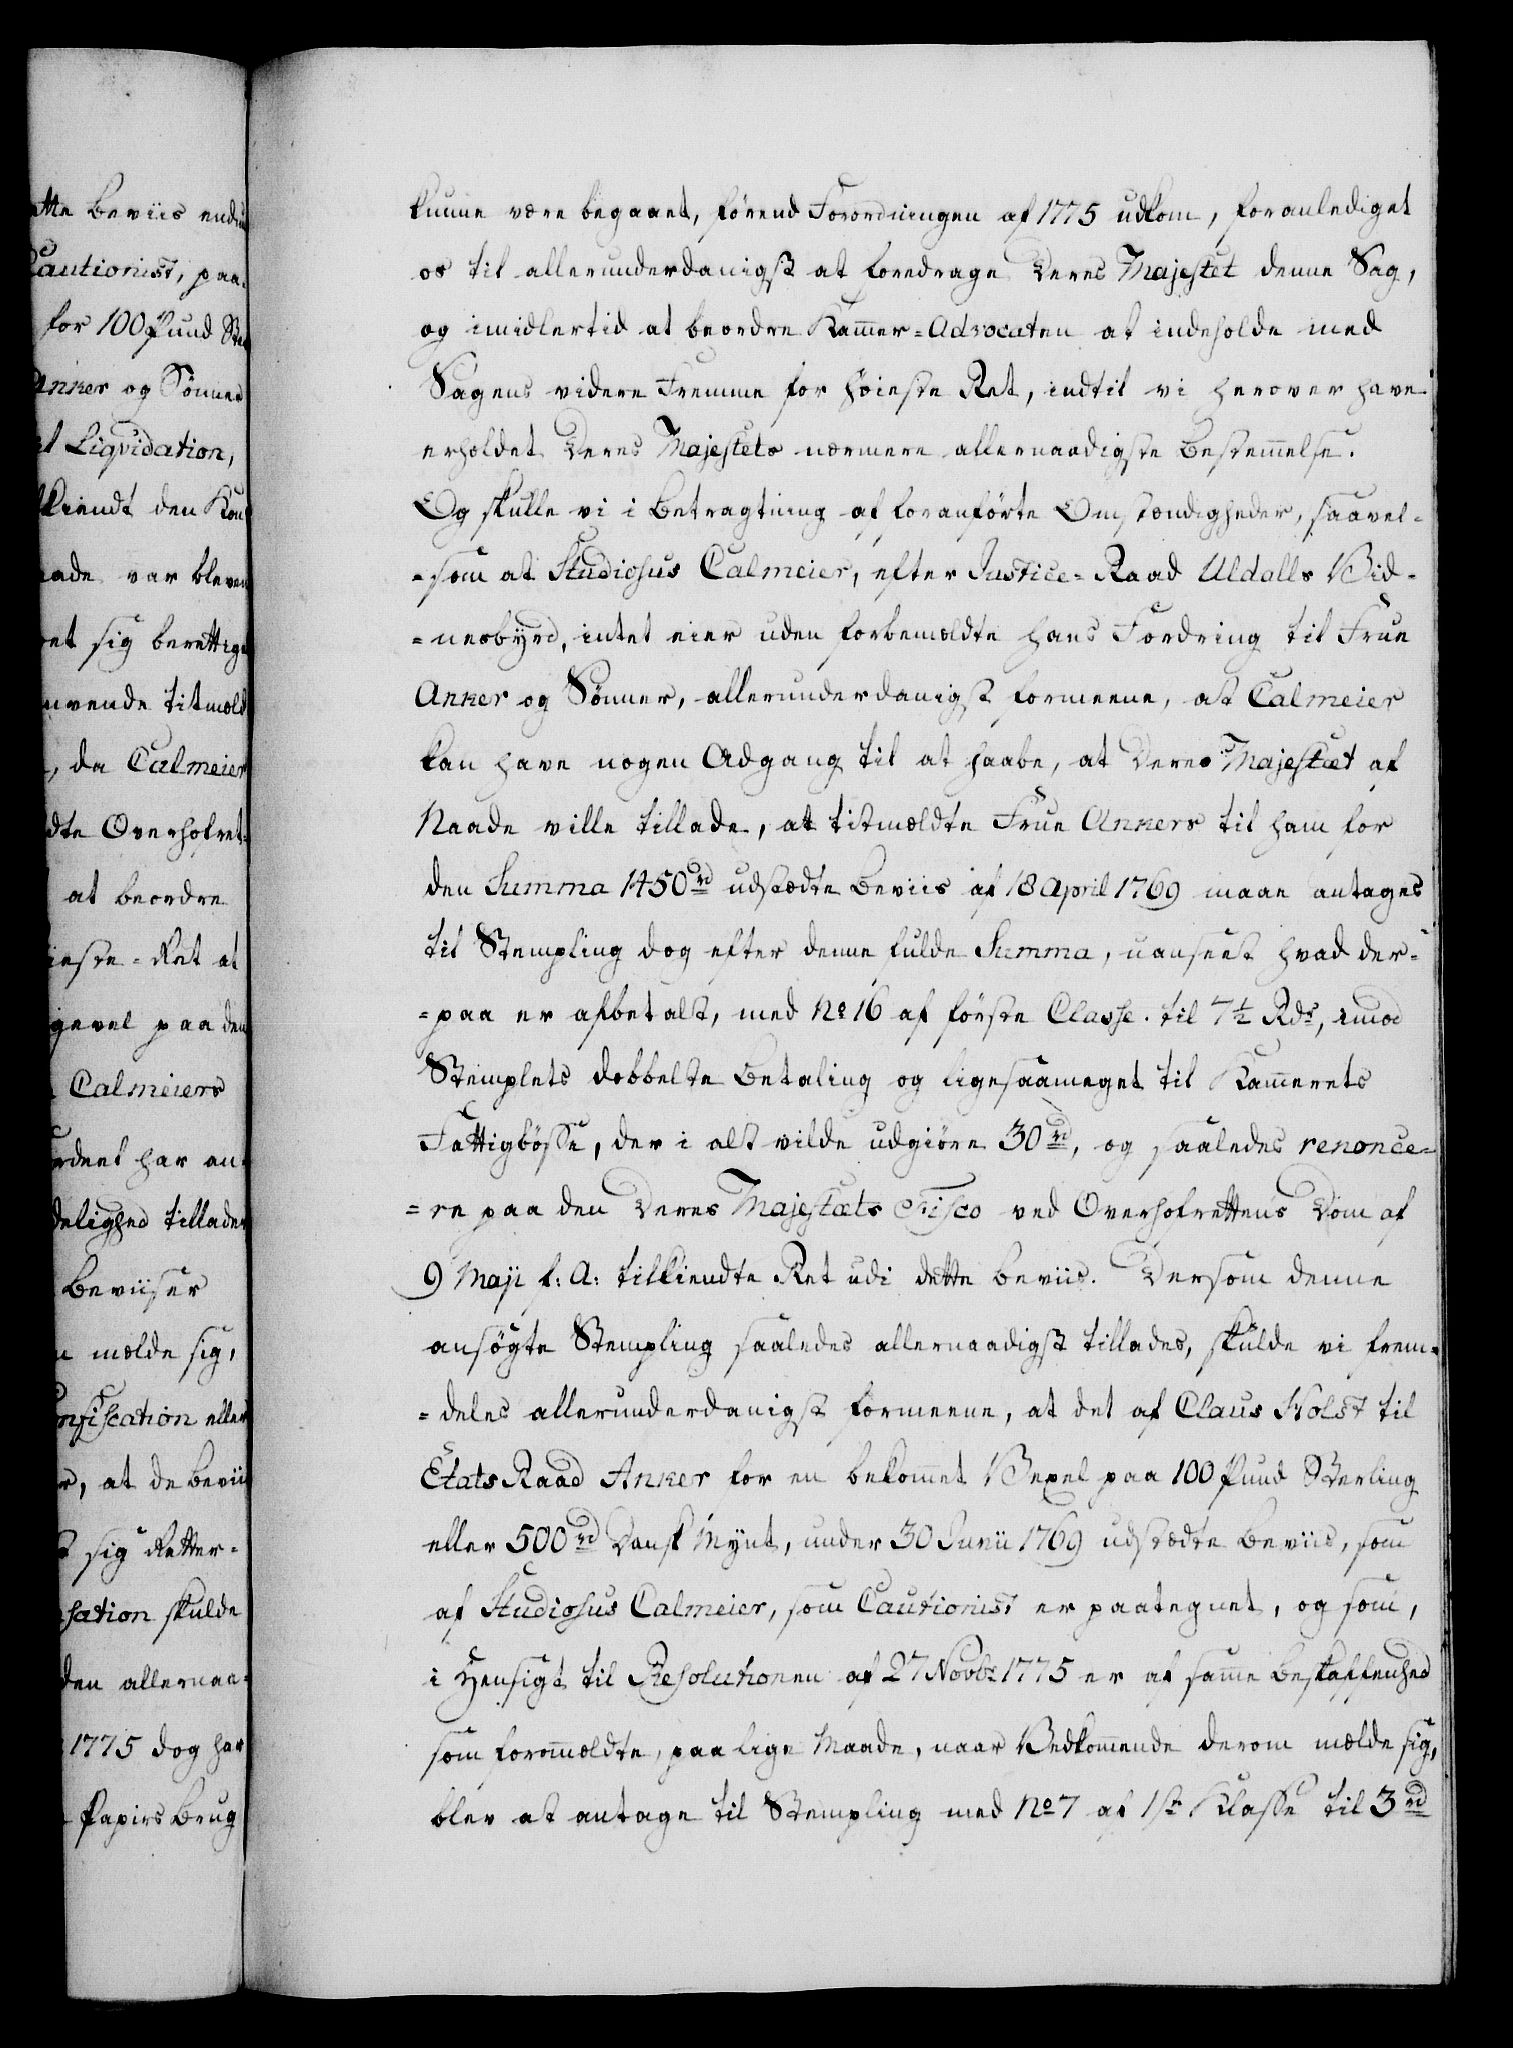 tte Beviis endnu
Cautionist, paa-
for 100 Pund Ster
Anker og Sønner
el Liqvidation,
kiendt den Kon
aade var bleven
et sig berettiget
nvende titmæld
, da Calmeier
dte Overhofret-
at beordre
ieste-Ret at
gevel paa den
Calmeiers
rdent har an-
delighed tillader
Beviiser
n melde sig,
onfiscation eller
r, at de Bevii
t sig Retter-
sation skulde
den allernaa-
1775 dog har
Papirs Brug
kunne være begaaet, førend Forordningen af 1775 udkom, foranlediget
os til allerunderdanigst at foredrage Deres Majestet denne Sag,
og imidlertid at beordre Kam̄er=Advocaten at indeholde med
Sagens videre Fremme for Høieste Ret, indtil vi herover have
erholdet Deres Majestets nærmere allernaadigste Bestem̄else.
Og skulle vi i Betragtning af foranførte Omstændigheder, saavel-
=som at Studiosus Calmeier, efter Justice=Raad Uldalls Vid-
=nesbyrd, intet eier uden forbemældte hans Fordring til Frue
Anker og Sønner, allerunderdanigst formeene, at Calmeier
kan have nogen Adgang til at haabe, at Deres Majestæt af
Naade ville tillade, at titmældte Frue Ankers til ham for
den Summa 1450 rd udstædte Beviis af 18 April 1769 maae antages
til Stempling dog efter denne fulde Summa, uanseet hvad der-
=paa er afbetalt, med No 16 af første Classe til 7½ Rdr, imod
Stemplets dobbelte Betaling og ligesaameget til Kam̄erets
Fattigbøsse, der i alt vilde udgiøre 30 rd, og saaledes renonce-
=re paa den Deres Majestæts Fisco ved Overhofrettens Dom af
9 Maji f: A: tilkiendte Ret udi dette Beviis. Dersom denne
ansøgte Stempling saaledes allernaadigst tillades, skulde vi frem-
=deles allerunderdanigst formeene, at det af Claus Holst til
Etats Raad Anker for en bekom̄et Vexel paa 100 Pund Sterling
eller 500 rd Dansk Mynt, under 30 Junii 1769 udstædte Beviis, som
af Studiosus Calmeier, som Cautionist er paategnet, og som,
i Hensigt til Resolutionen af 27 Novbr 1775 er af sam̄e Beskaffenhed
som forommældte, paa lige Maade, naar Vedkom̄ende derom mælde sig,
blev at antage til Stempling med No 7 af 1ste Klasse til 3 rd